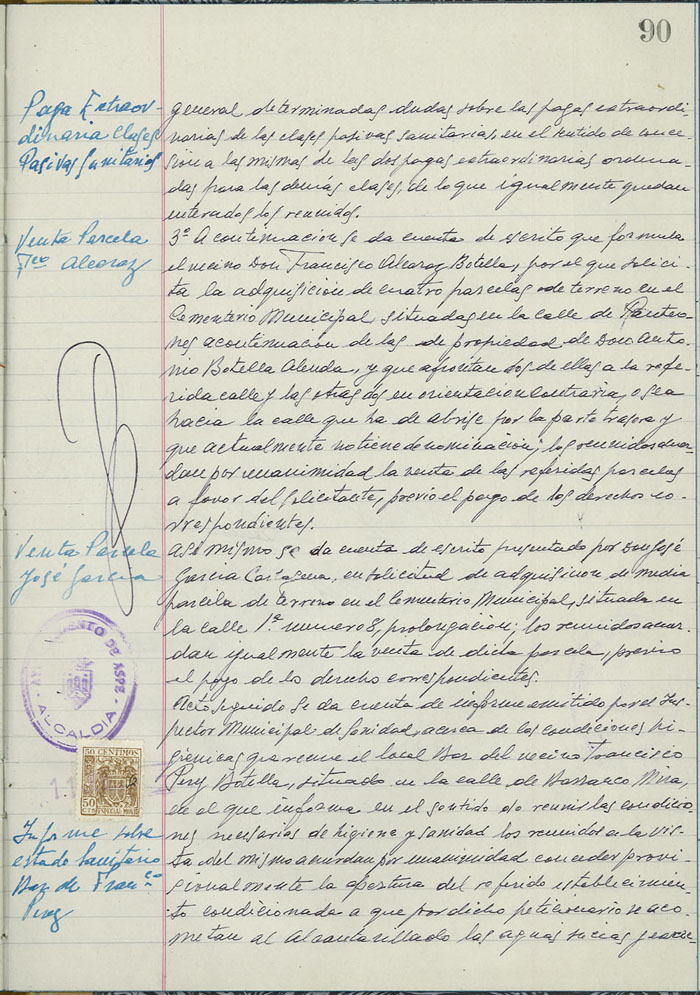 90
Paga Extraor-
dinaria Clases
Pasivas Sanitarios
general determinadas dudas sobre las pagas extraordi-
narias de las clases pasivas sanitarias, en el sentido de conce-
sion a las mismas de las dos pagas extraordinarias ordena-
das para las demás clases, de lo que igualmente quedan
enterados los reunidos.
Venta Parcela
Fco Alcaraz
3º A continuacion se da cuenta de escrito que formula
el vecino Don Francisco Alcaraz Botella, por el que solici-
ta la adquisicion de cuatro parcelas de terreno en el
Cementerio Municipal situadas en la calle de Panteo-
nes a continuacion de las de propiedad de Don Anto-
nio Botella Alenda, y que afrontan dos de ellas a la refe-
rida calle y las otras dos en orientacion contraria, o sea
hacia la calle que ha de abrise por la parte trasera y
que actualmente no tiene denominacion; los reunidos acuer-
dan por unanimidad la venta de las referidas parcelas
a favor del solicitante, previo el pago de los derechos co-
rrespondientes.
Venta Parcela
José Garcia
Asi mismo se da cuenta de escrito presentado por Don José
Garcia Cartagena, en solicitud de adquisicion de media
parcela de terreno en el Cementerio Municipal, situada en
la calle 1ª numero 8, prolongacion; los reunidos acuer-
dan igualmente la venta de dicha parcela, previo
el pago de los derecho correspondientes.
AYUNTAMIENTO DE ASPE
ALCALDIA
50 CENTIMOS
50
Informe sobre
estado Sanitario
Bar de Franco
Perez
Acto seguido se da cuenta de informe emitido por el Ins-
pector Municipal de Sanidad, acerca de las condiciones hi-
gienicas que reune el local Bar del vecino Francisco
Perez Botella, situado en la calle de Barranco Mira,
en el que informa en el sentido de reunir las condicio-
nes necesarias de higiene y sanidad los reunidos a la vis-
ta del mismo acuerdan por unanimidad conceder provi-
sionalmente la apertura del referido establecimien-
to condicionada a que por dicho peticionario se aco-
metan al Alcantarillado las aguas sucas y